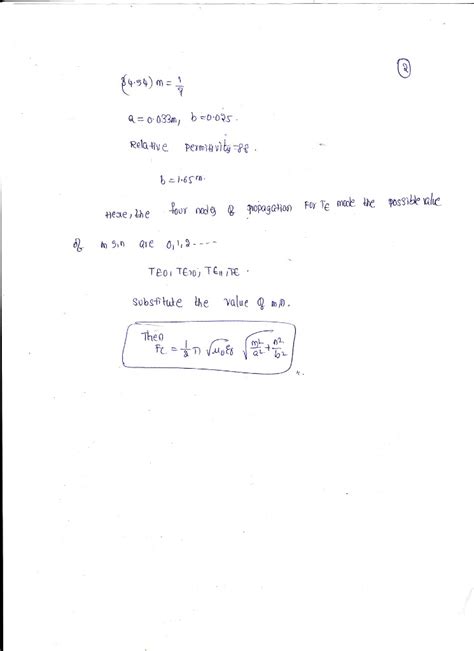 2
(4.54) m = 1/9
a = 0.033m, b = 0.025.
Relative permitivity
b = 1.65 m.
Here, the four nodes of propagation For TE mode the possible value
of m & n are 0, 1, 2 ----
TE01, TE10, TE11, TE.
substitute the value of m, n.
Then
Fc = 1/2 π √μ0ε0 √m²/a² + n²/b²